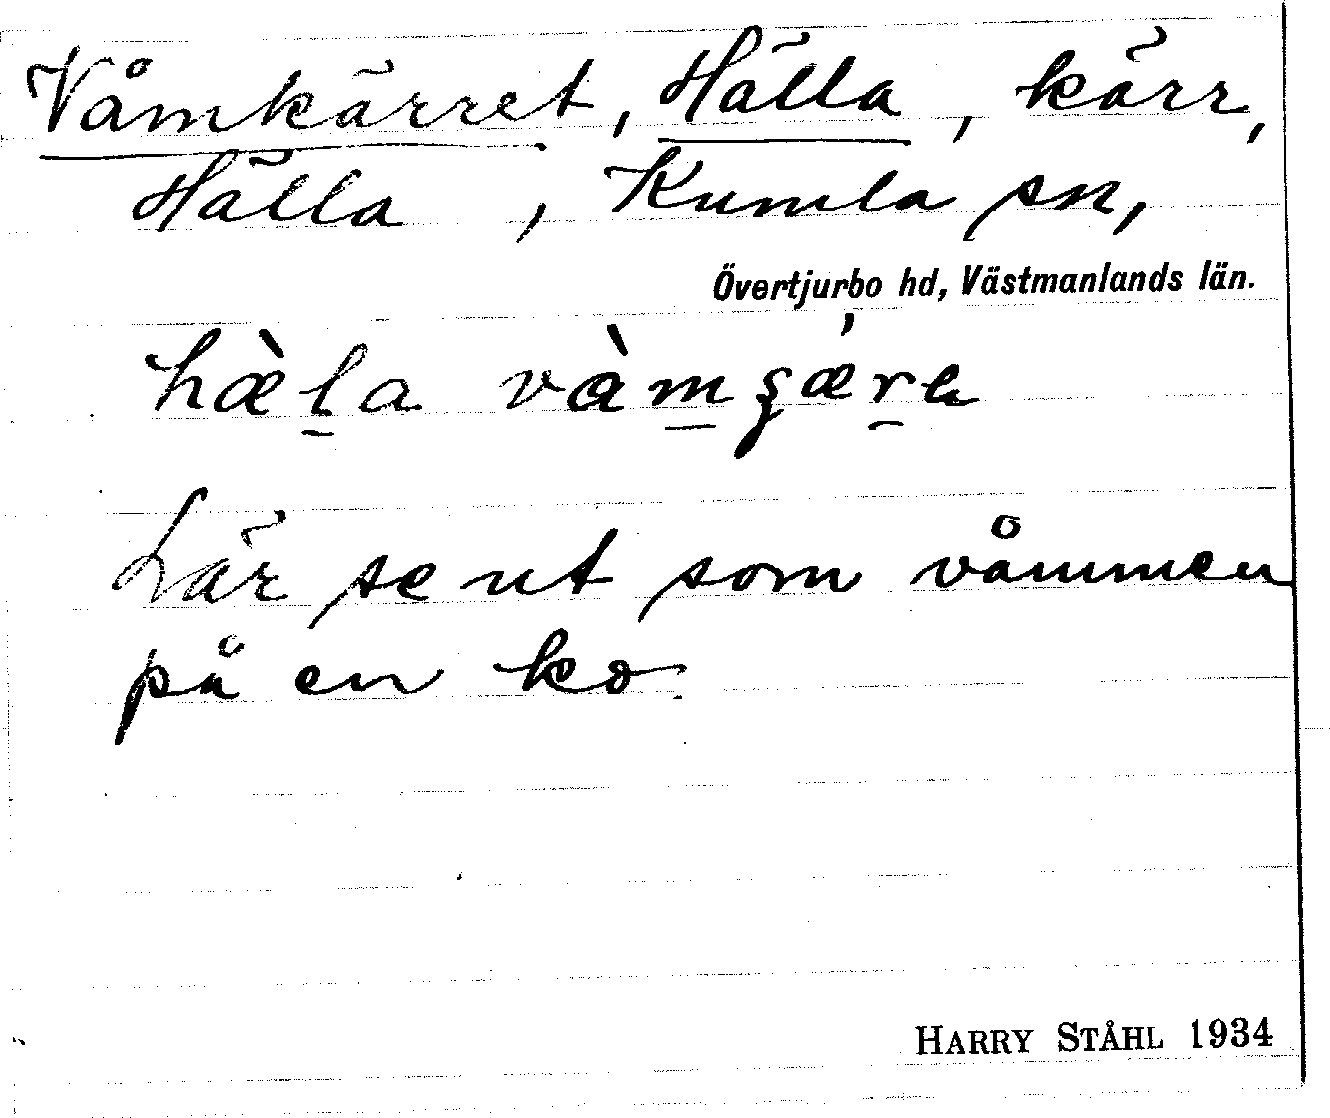 Våmkärret, Hälla, kärr,
Hälla, Kumla sn,
Övertjurbo hd, Västmanlands län.
hæ̀l̠a vàm̠ʂǽr̠ɐ
Lär se ut som våmmen
på en ko.
HARRY STÅHL 1934